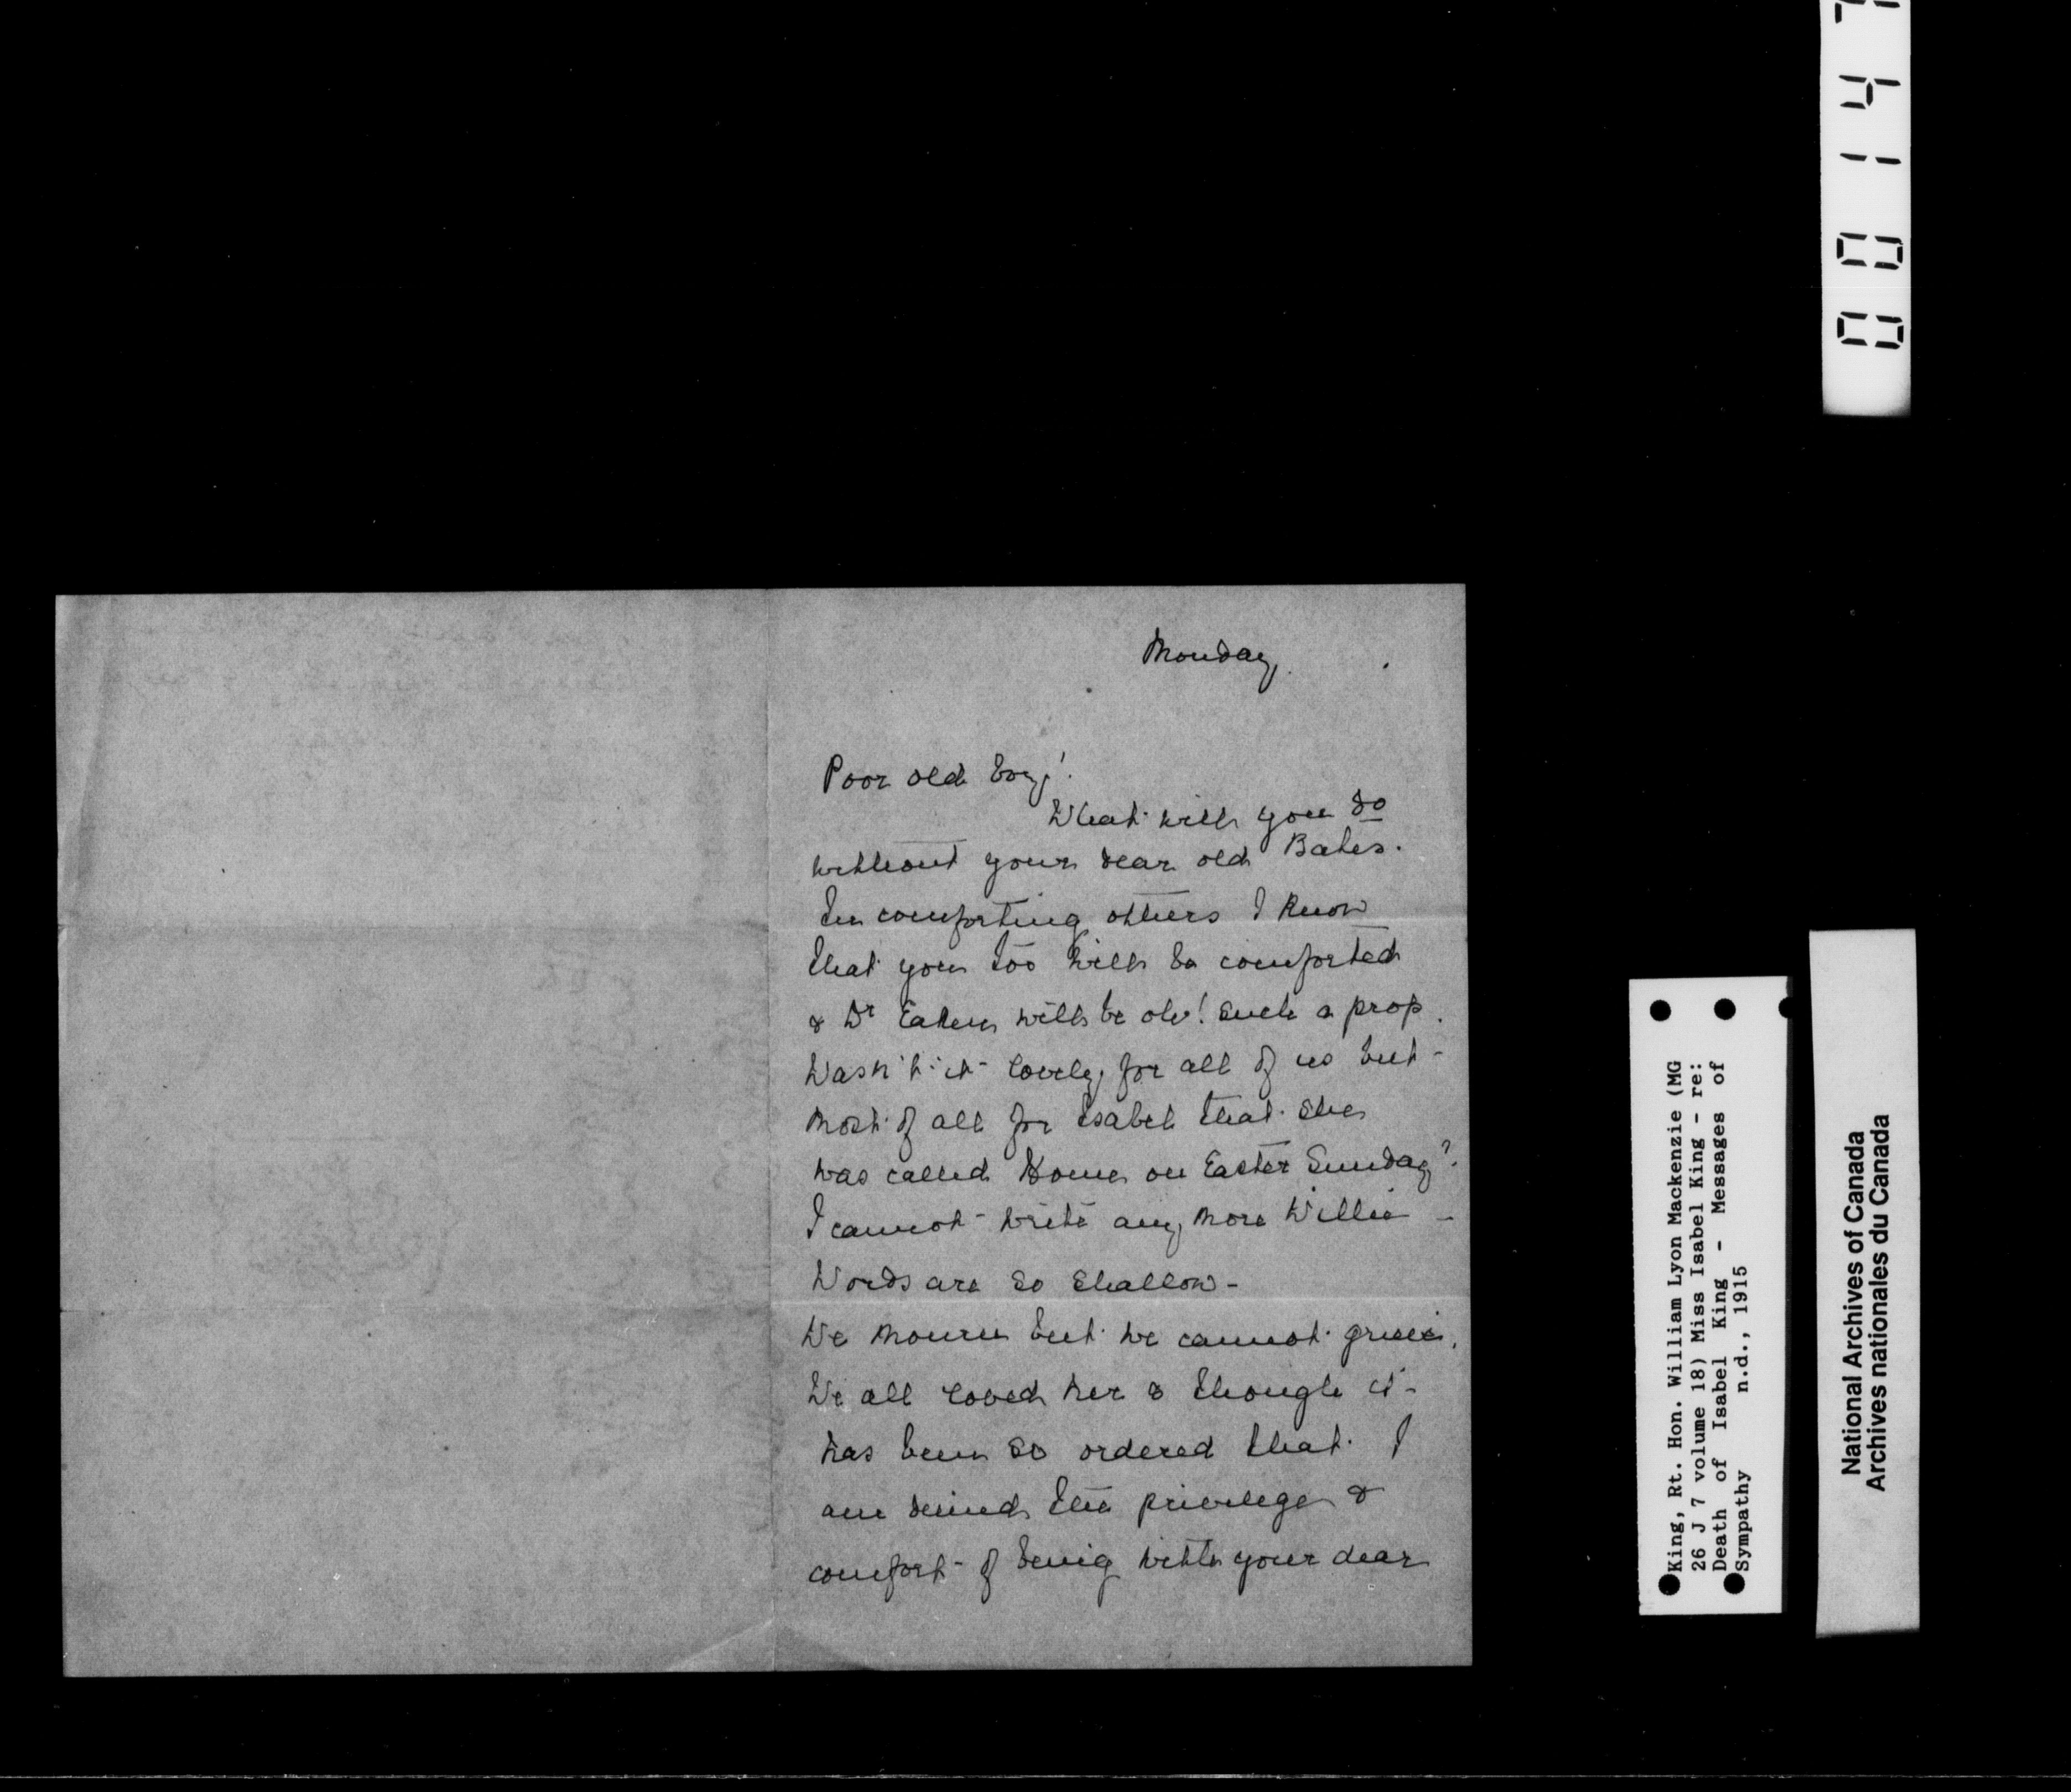 Monday.
Poor old boy!
What will you do
without your dear old Bates.
In comforting others I know
that you too will be comforted
& Dr Eakins will be oh! such a prop.
Wasn't it lovely for all of us but
most of all for Isabel that she
was called Home on Easter Sunday?
I cannot write any more Willie -
Words are so shallow -
We mourn but we cannot grieve.
We all loved her & though it
has been so ordered that I
am denied the privilege &
comfort of being with your dear
King, Rt. Hon. William Lyon Mackenzie (MG
26 J 7 volume 18) Miss Isabel King - re:
Death of Isabel King - Messages of
Sympathy n.d., 1915
National Archives of Canada
Archives nationales du Canada
00147